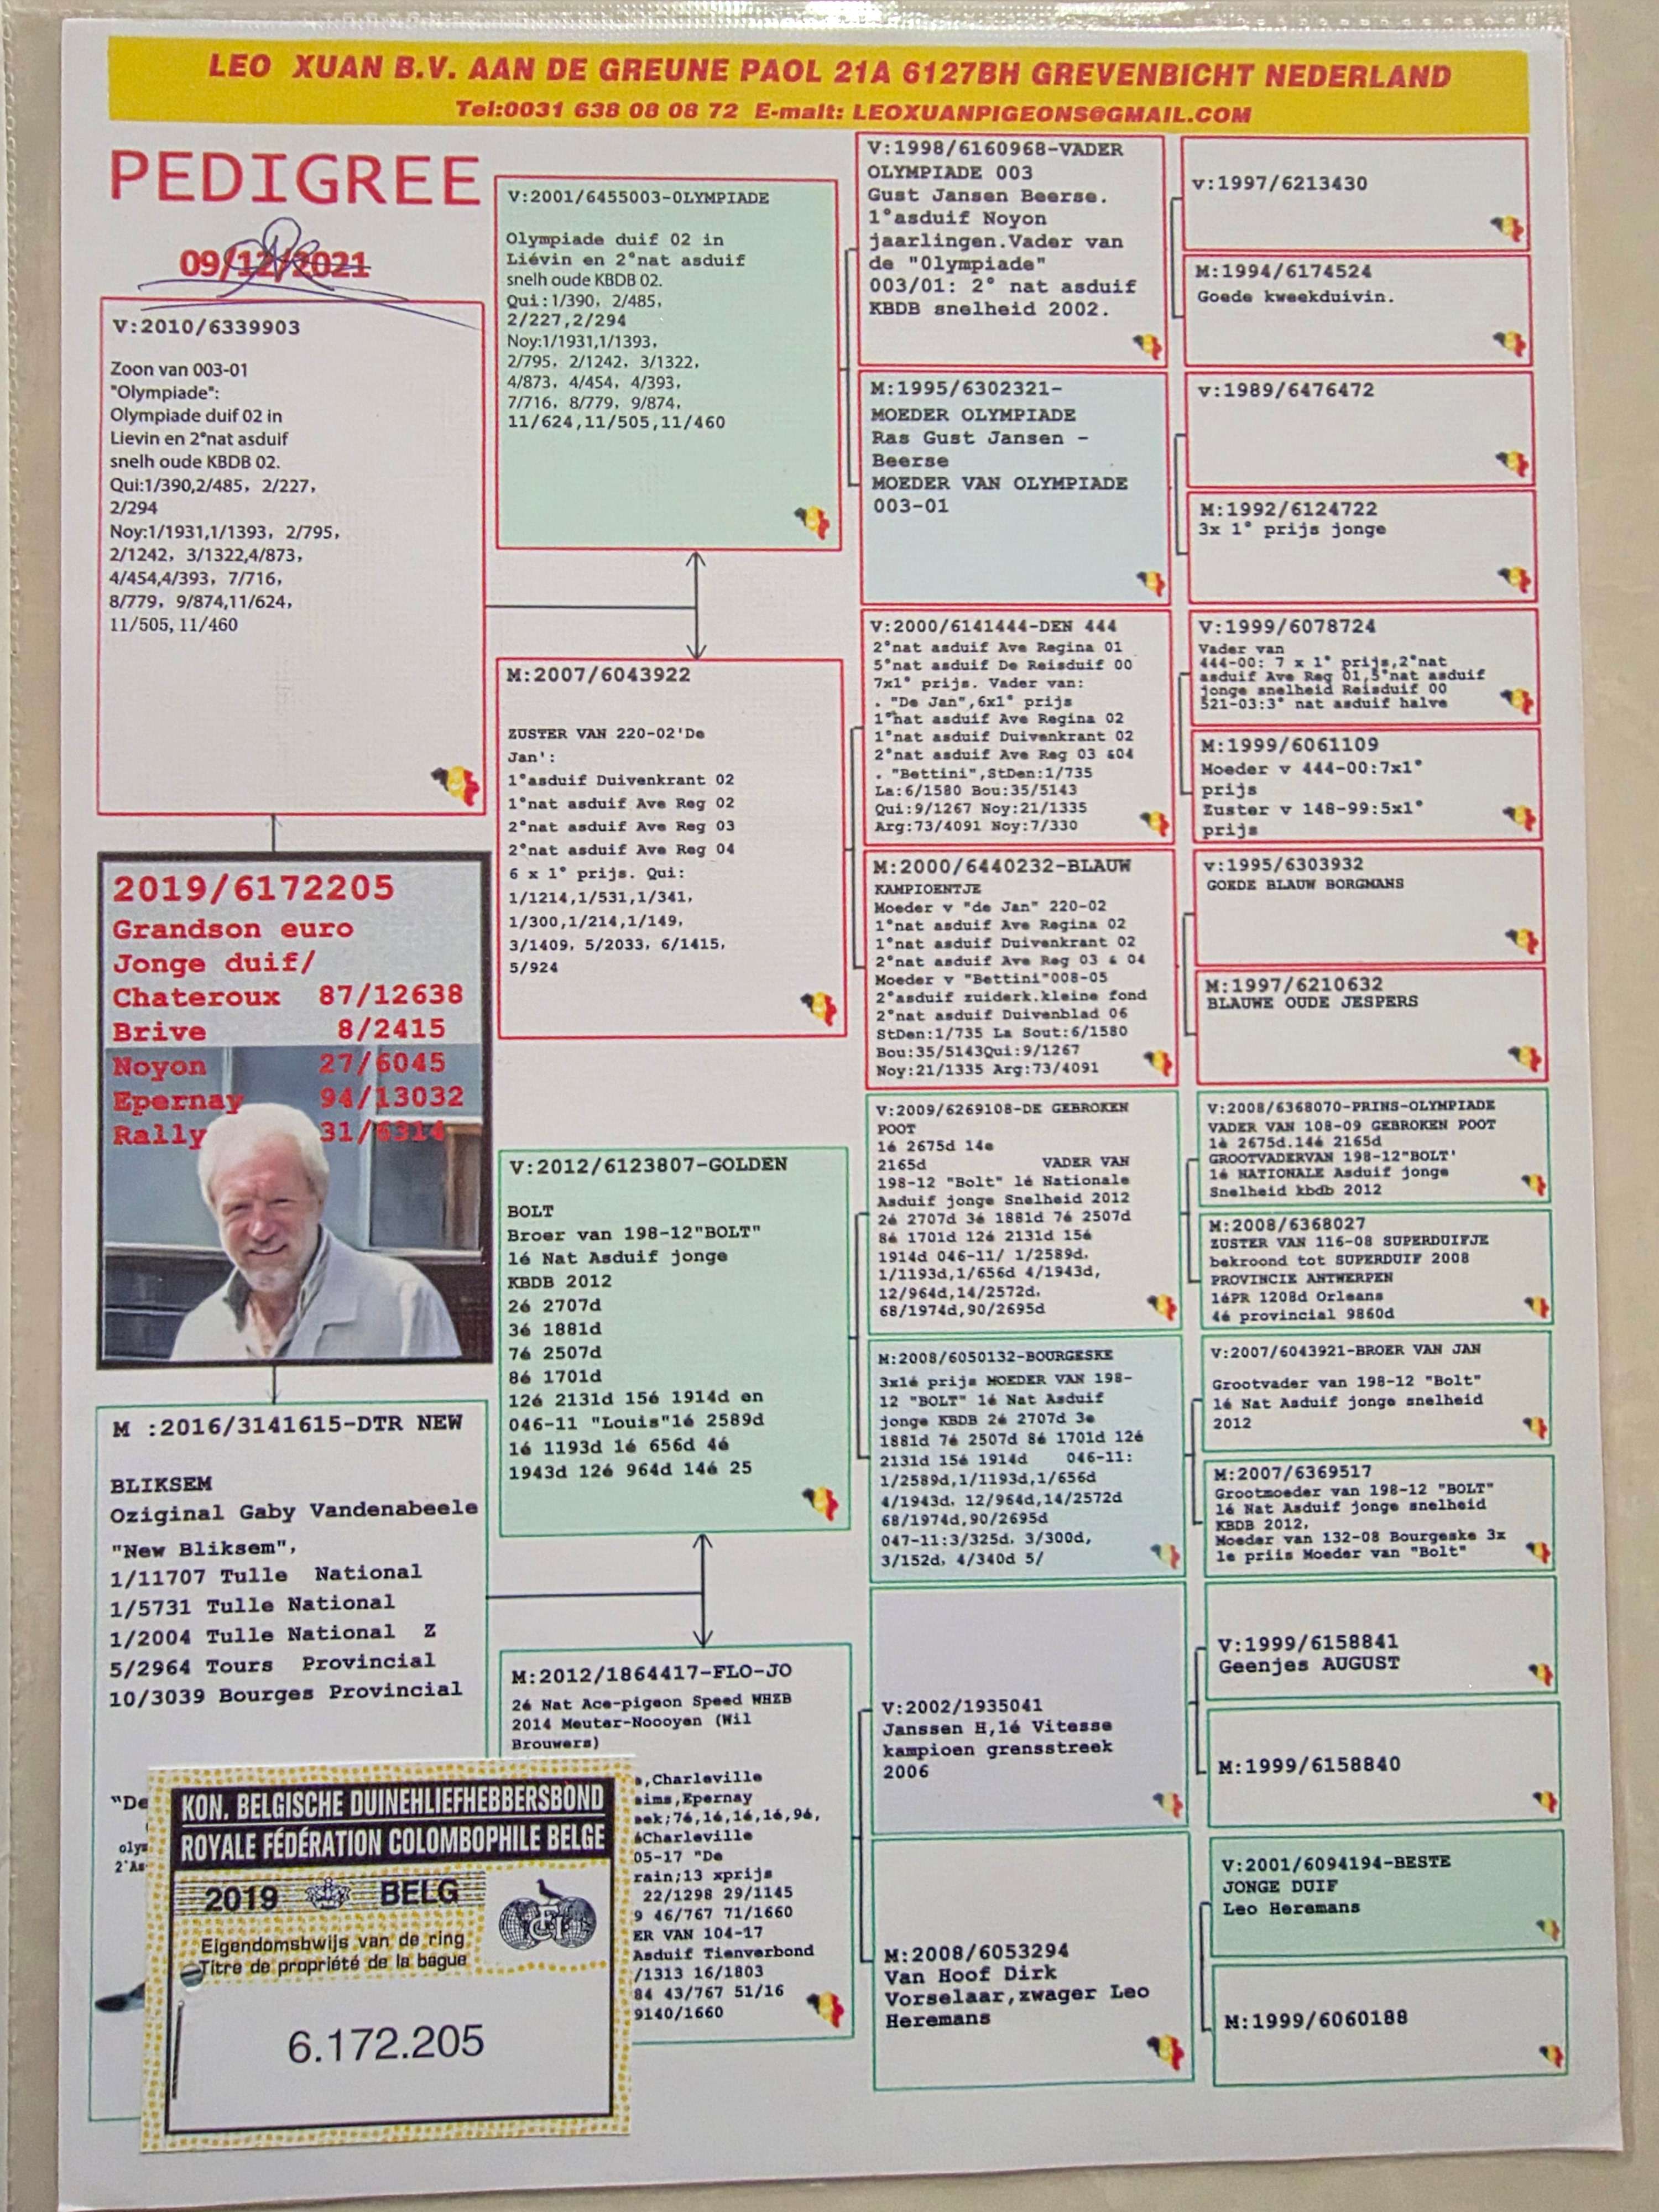 LEO XUAN B.V. AAN DE GREUNE PAOL 21A 6127BH GREVENBICHT NEDERLAND
Tel:0031 638 08 08 72 E-malt: LEOXUANPIGEONS@GMAIL.COM
PEDIGREE
09/12/2021
V:2010/6339903
Zoon van 003-01
"Olympiade":
Olympiade duif 02 in
Lievin en 2°nat asduif
snelh oude KBDB 02.
Qui:1/390,2/485, 2/227,
2/294
Noy:1/1931,1/1393, 2/795,
2/1242, 3/1322,4/873,
4/454,4/393, 7/716,
8/779, 9/874,11/624,
11/505, 11/460
2019/6172205
Grandson euro
Jonge duif/
Chateroux 87/12638
Brive 8/2415
Noyon 27/6045
Epernay 94/13032
Rally 31/6314
M :2016/3141615-DTR NEW
BLIKSEM
Oziginal Gaby Vandenabeele
"New Bliksem",
1/11707 Tulle National
1/5731 Tulle National
1/2004 Tulle National Z
5/2964 Tours Provincial
10/3039 Bourges Provincial
"De
oly
2°As
KON. BELGISCHE DUINEHLIEFHEBBERSBOND
ROYALE FÉDÉRATION COLOMBOPHILE BELGE
2019 BELG
Eigendomsbwijs van de ring
Titre de propriété de la bague
6.172.205
V:2001/6455003-OLYMPIADE
Olympiade duif 02 in
Liévin en 2°nat asduif
snelh oude KBDB 02.
Qui:1/390, 2/485,
2/227,2/294
Noy:1/1931,1/1393,
2/795, 2/1242, 3/1322,
4/873, 4/454, 4/393,
7/716, 8/779, 9/874,
11/624,11/505,11/460
M:2007/6043922
ZUSTER VAN 220-02'De
Jan':
1°asduif Duivenkrant 02
1°nat asduif Ave Reg 02
2°nat asduif Ave Reg 03
2°nat asduif Ave Reg 04
6 x 1° prijs. Qui:
1/1214,1/531,1/341,
1/300,1/214,1/149,
3/1409, 5/2033, 6/1415,
5/924
V:2012/6123807-GOLDEN
BOLT
Broer van 198-12"BOLT"
1é Nat Asduif jonge
KBDB 2012
2é 2707d
3é 1881d
7é 2507d
8é 1701d
12é 2131d 15é 1914d en
046-11 "Louis"1é 2589d
1é 1193d 1é 656d 4é
1943d 12é 964d 14é 25
M:2012/1864417-FLO-JO
2é Nat Ace-pigeon Speed WHZB
2014 Meuter-Noooyen (Wil
Brouwers)
,Charleville
eims,Epernay
eek;7é,1é,1é,1é,9é,
éCharleville
05-17 "De
rain;13 xprijs
22/1298 29/1145
9 46/767 71/1660
ER VAN 104-17
Asduif Tienverbond
/1313 16/1803
84 43/767 51/16
9140/1660
V:1998/6160968-VADER
OLYMPIADE 003
Gust Jansen Beerse.
1°asduif Noyon
jaarlingen.Vader van
de "Olympiade"
003/01: 2° nat asduif
KBDB snelheid 2002.
M:1995/6302321-
MOEDER OLYMPIADE
Ras Gust Jansen -
Beerse
MOEDER VAN OLYMPIADE
003-01
V:2000/6141444-DEN 444
2°nat asduif Ave Regina 01
5°nat asduif De Reisduif 00
7x1° prijs. Vader van:
. "De Jan",6x1° prijs
1°nat asduif Ave Regina 02
1°nat asduif Duivenkrant 02
2°nat asduif Ave Reg 03 &04
. "Bettini",StDen:1/735
La:6/1580 Bou:35/5143
Qui:9/1267 Noy:21/1335
Arg:73/4091 Noy:7/330
M:2000/6440232-BLAUW
KAMPIOENTJE
Moeder v "de Jan" 220-02
1°nat asduif Ave Regina 02
1°nat asduif Duivenkrant 02
2°nat asduif Ave Reg 03 & 04
Moeder v "Bettini"008-05
2°asduif zuiderk.kleine fond
2°nat asduif Duivenblad 06
StDen:1/735 La Sout:6/1580
Bou:35/5143Qui:9/1267
Noy:21/1335 Arg:73/4091
V:2009/6269108-DE GEBROKEN
POOT
1é 2675d 14e
2165d VADER VAN
198-12 "Bolt" 1é Nationale
Asduif jonge Snelheid 2012
2é 2707d 3é 1881d 7é 2507d
8é 1701d 12é 2131d 15é
1914d 046-11/ 1/2589d,
1/1193d,1/656d 4/1943d,
12/964d,14/2572d,
68/1974d,90/2695d
M:2008/6050132-BOURGESKE
3x1é prijs MOEDER VAN 198-
12 "BOLT" 1é Nat Asduif
jonge KBDB 2é 2707d 3e
1881d 7é 2507d 8é 1701d 12é
2131d 15é 1914d 046-11:
1/2589d,1/1193d,1/656d
4/1943d, 12/964d,14/2572d
68/1974d,90/2695d
047-11:3/325d, 3/300d,
3/152d, 4/340d 5/
V:2002/1935041
Janssen H,1é Vitesse
kampioen grensstreek
2006
M:2008/6053294
Van Hoof Dirk
Vorselaar,zwager Leo
Heremans
v:1997/6213430
M:1994/6174524
Goede kweekduivin.
v:1989/6476472
M:1992/6124722
3x 1° prijs jonge
V:1999/6078724
Vader van
444-00: 7 x 1° prijs,2°nat
asduif Ave Reg 01,5°nat asduif
jonge snelheid Reisduif 00
521-03:3° nat asduif halve
M:1999/6061109
Moeder v 444-00:7x1°
prijs
Zuster v 148-99:5x1°
prijs
v:1995/6303932
GOEDE BLAUW BORGMANS
M:1997/6210632
BLAUWE OUDE JESPERS
V:2008/6368070-PRINS-OLYMPIADE
VADER VAN 108-09 GEBROKEN POOT
1é 2675d.14é 2165d
GROOTVADERVAN 198-12"BOLT'
1é NATIONALE Asduif jonge
Snelheid kbdb 2012
M:2008/6368027
ZUSTER VAN 116-08 SUPERDUIFJE
bekroond tot SUPERDUIF 2008
PROVINCIE ANTWERPEN
1éPR 1208d Orleans
4é provincial 9860d
V:2007/6043921-BROER VAN JAN
Grootvader van 198-12 "Bolt"
1é Nat Asduif jonge snelheid
2012
M:2007/6369517
Grootmoeder van 198-12 "BOLT"
1é Nat Asduif jonge snelheid
KBDB 2012,
Moeder van 132-08 Bourgeske 3x
1e priis Moeder van "Bolt"
V:1999/6158841
Geenjes AUGUST
M:1999/6158840
V:2001/6094194-BESTE
JONGE DUIF
Leo Heremans
M:1999/6060188